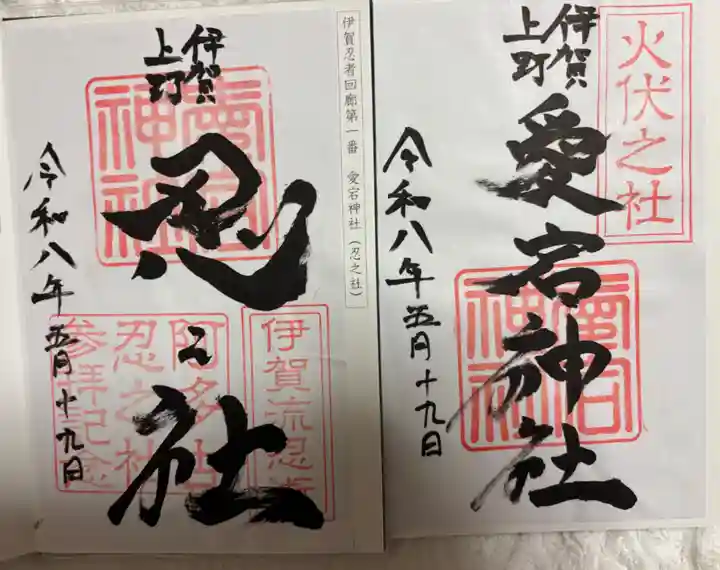 火伏之社
伊賀
上町
愛宕神社
愛宕
神社
令和八年五月十九日
伊賀忍者回廊第一番 愛宕神社(忍之社)
伊賀
上町
忍之社
愛宕
神社
伊賀流忍術
阿多古
忍之社
参拝記念
令和八年五月十九日